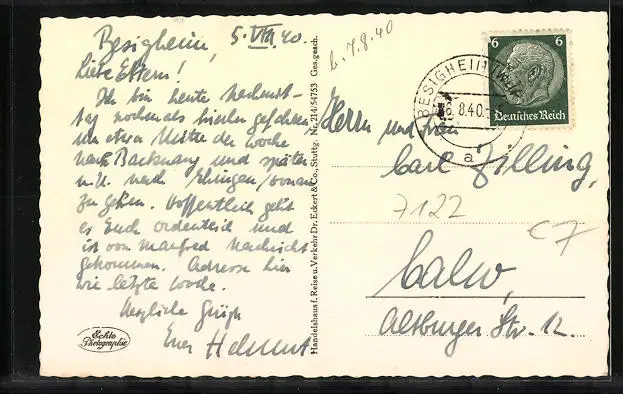 Besigheim, 5. VIII. 40.
Liebe Eltern!
Ich bin heute Nachmit-
tag nochmals hierher gefahren,
um etwa Mitte der Woche
nach Backnang und später
u.U. nach
zu gehen. Hoffentlich geht
es Euch ordentlich und
ist von Manfred Nachricht
gekommen. Adresse hier
wie letzte Woche.
Herzliche Grüße
Euer Helmut
Echte
Photographie
Handelshaus f. Reise u. Verkehr Dr. Eckert & Co., Stuttg. Nr. 214/54753 Ges. gesch.
b. 7.8.40
6 6
Deutsches Reich
BESIGHEIM
6.8.40
a
Herrn und Frau
Carl Zilling,
7122
C7
Calw,
Altburger Str. 12.